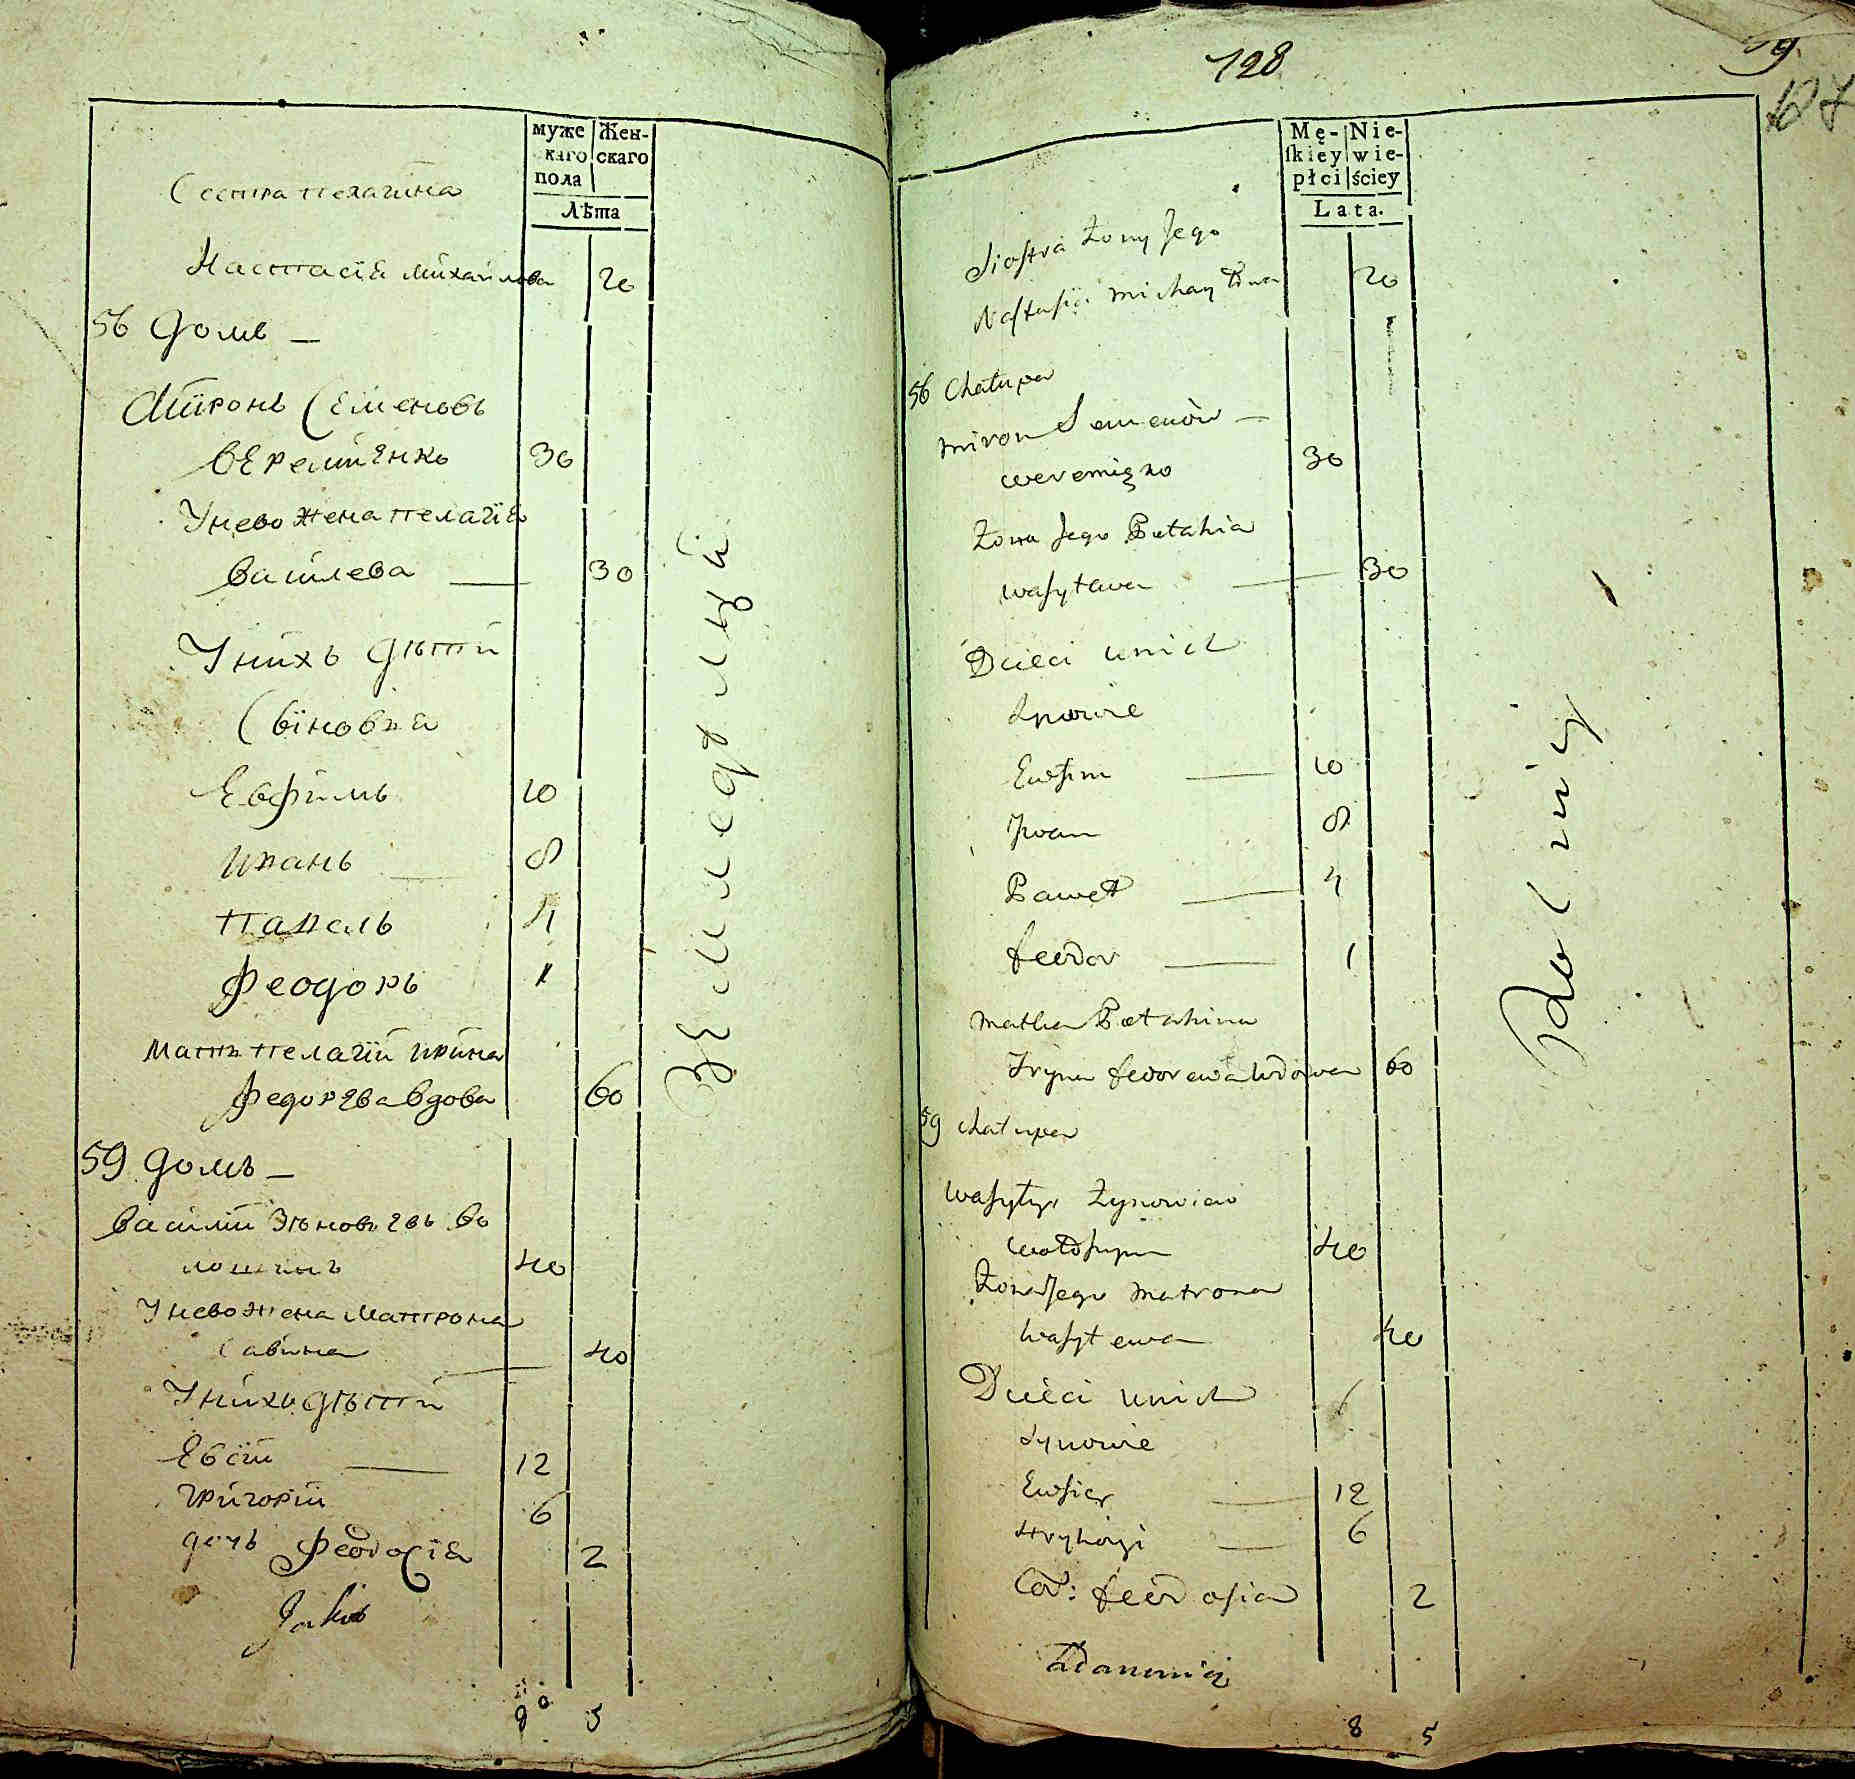 муже Жен-
каго скаго
пола
Лѣта
Сестра пелагина
Настасія михайлова 20
56 домъ —
Миронъ Семеновъ
веремиенко 30
Унево жена пелагія
василева — 30
У нихъ дѣти
Синовья
Евфимъ 10
иванъ — 8
павелъ 4
Феодоръ 1
мать пелагіи ирина
федорова вдова 60
59 домъ —
василій зѣновѣевъ во
лошинъ 40
Унево жена матрона
савина — 40
У нихъ дѣти
Евсій — 12
григорій 6
дочь Феодосія 2
8 5
Земледѣлцы
128
59
Mę- Nie-
skiey wie-
płci ściey
Lata.
Siostra żony Jego
Nastasia michayłowa 20
56 Chałupa
miron Semenow —
weremięko 30
Żona Jego Pełahia
wasylewa — 30
Dzieci unich
synowie
Ewfim — 10
Jwan 8
Paweł — 4
feodor — 1
matka Pełahina
Iryna fedorewa wdowa 60
59 chałupa
wasyly Zynowiew
wołoszyn 40
Żona Jego matrona
wasylewa 40
Dzieci unich
synowie
Ewsiey — 12
Hryhory — 6
Cor: feodosia 2
8 5
Rolnicy